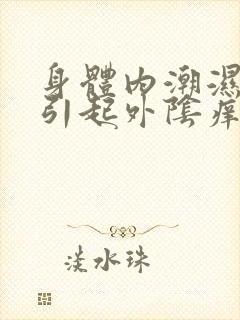 身體內潮濕
引起外陰痒
淡水珠